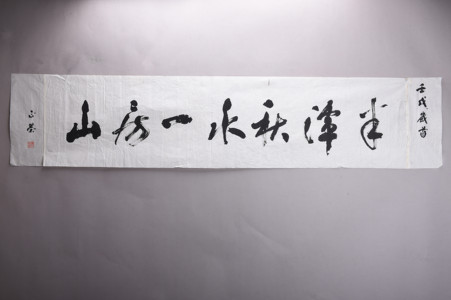 壬戌歲首
半潭秋水一房山